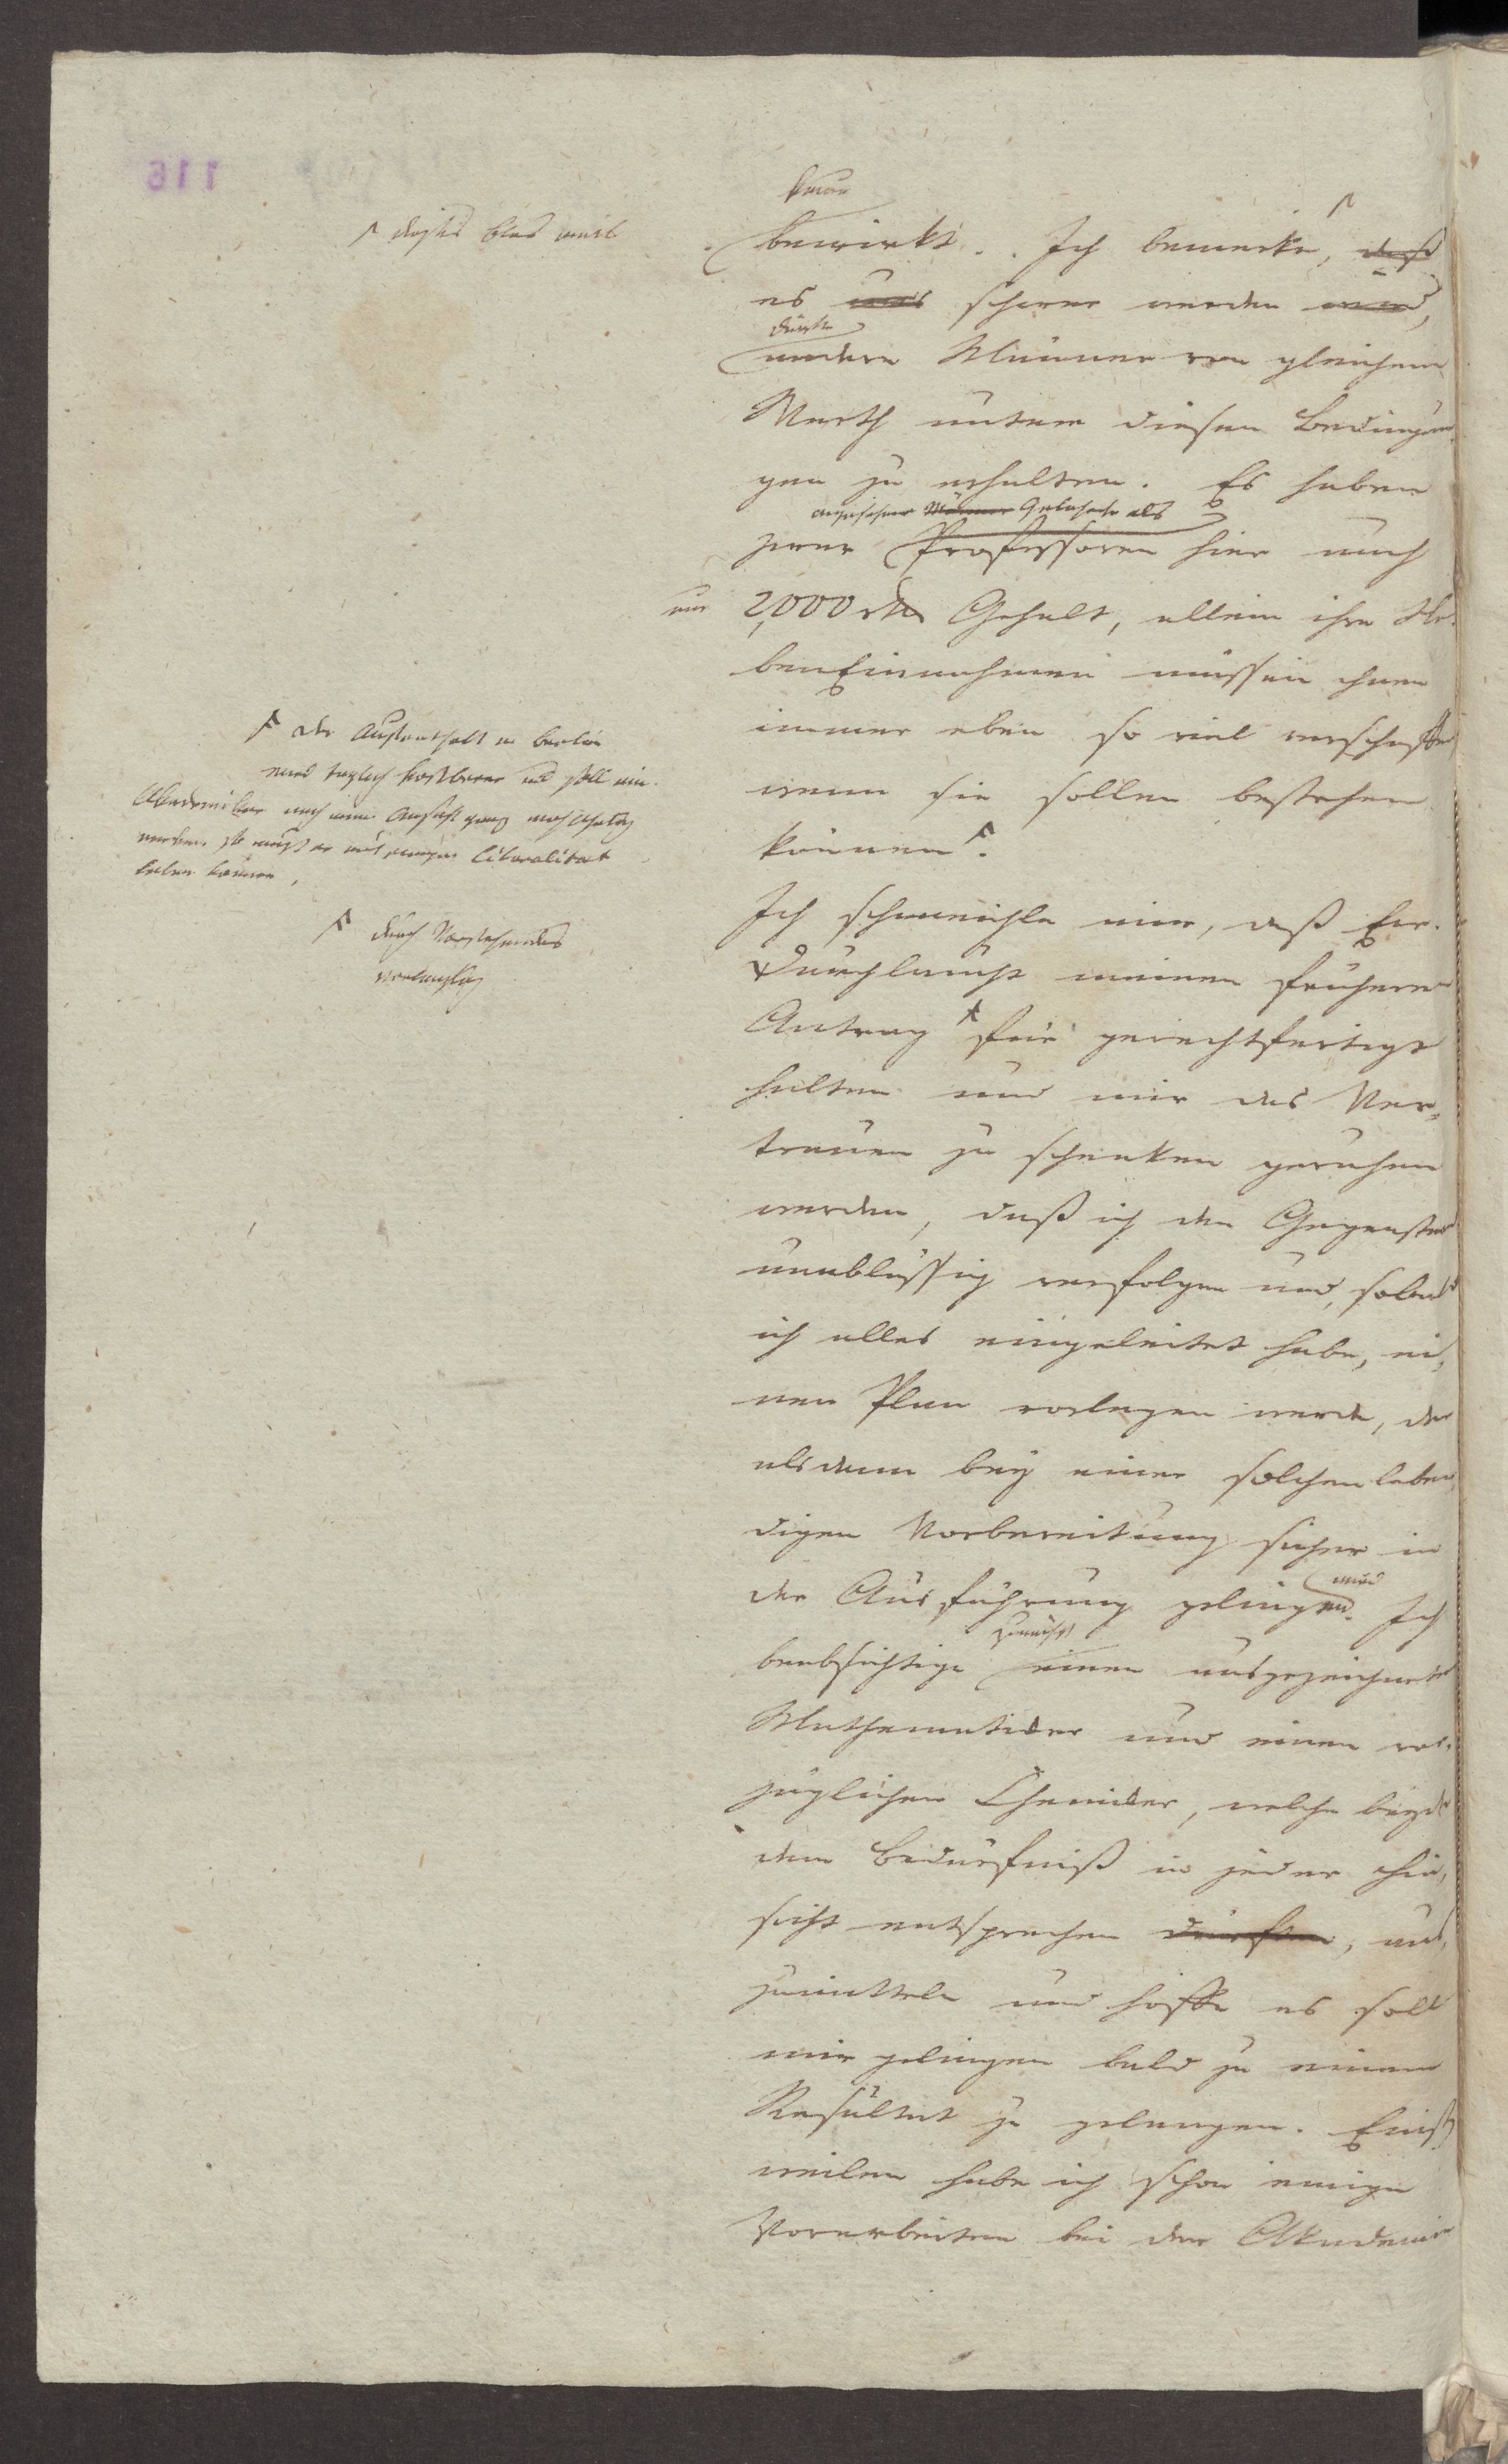 116
kann
bewirkt. Ich bemerke, daß
dieses blos weil
es uns schwer werden wird,
dürfte
andere Männer von gleichem
Werth unter diesen Bedingun-
gen zu erhalten. Es haben
angesehene Männer Gelehrte als
zwar Professoren hier auch
nur 2,000 rth Gehalt, allein ihre Ne-
benEinnahmen müssen ihnen
immer eben so viel verschaffen
wenn sie sollen bestehen
können.
der Aufenthalt in Berlin
wird täglich kostbarer und soll ein
Akademiker nach seiner Ansicht ganz
werden, so muß er mit einiger Liberalitaet
leben können,
Ich schmeichle mir, daß Ew.
Durchlaucht meinen früheren
Antrag für gerechtfertigt
durch Vorstehendes
vorläufig
halten und mir das Ver-
trauen zu schenken geruhen
werden, daß ich den Gegenstand
unablässig verfolgen und, sobald
ich alles eingeleitet habe, ei-
nen Plan vorlegen werde, der
alsdann bey einer solchen leben-
digen Vorbereitung sicher in
der Ausführung gelingen wird. Ich
zunächst
beabsichtige einen ausgezeichneten
Mathematiker und einen vor-
züglichen Chemiker, welche beyde
dem Bedürfniß in jeder Hin-
sicht entsprechen dürften, aus-
zumitteln und hoffe es soll
mir gelingen bald zu einem
Resultat zu gelangen. Einst-
weilen habe ich schon einige
Vorarbeiten bei der Akademie